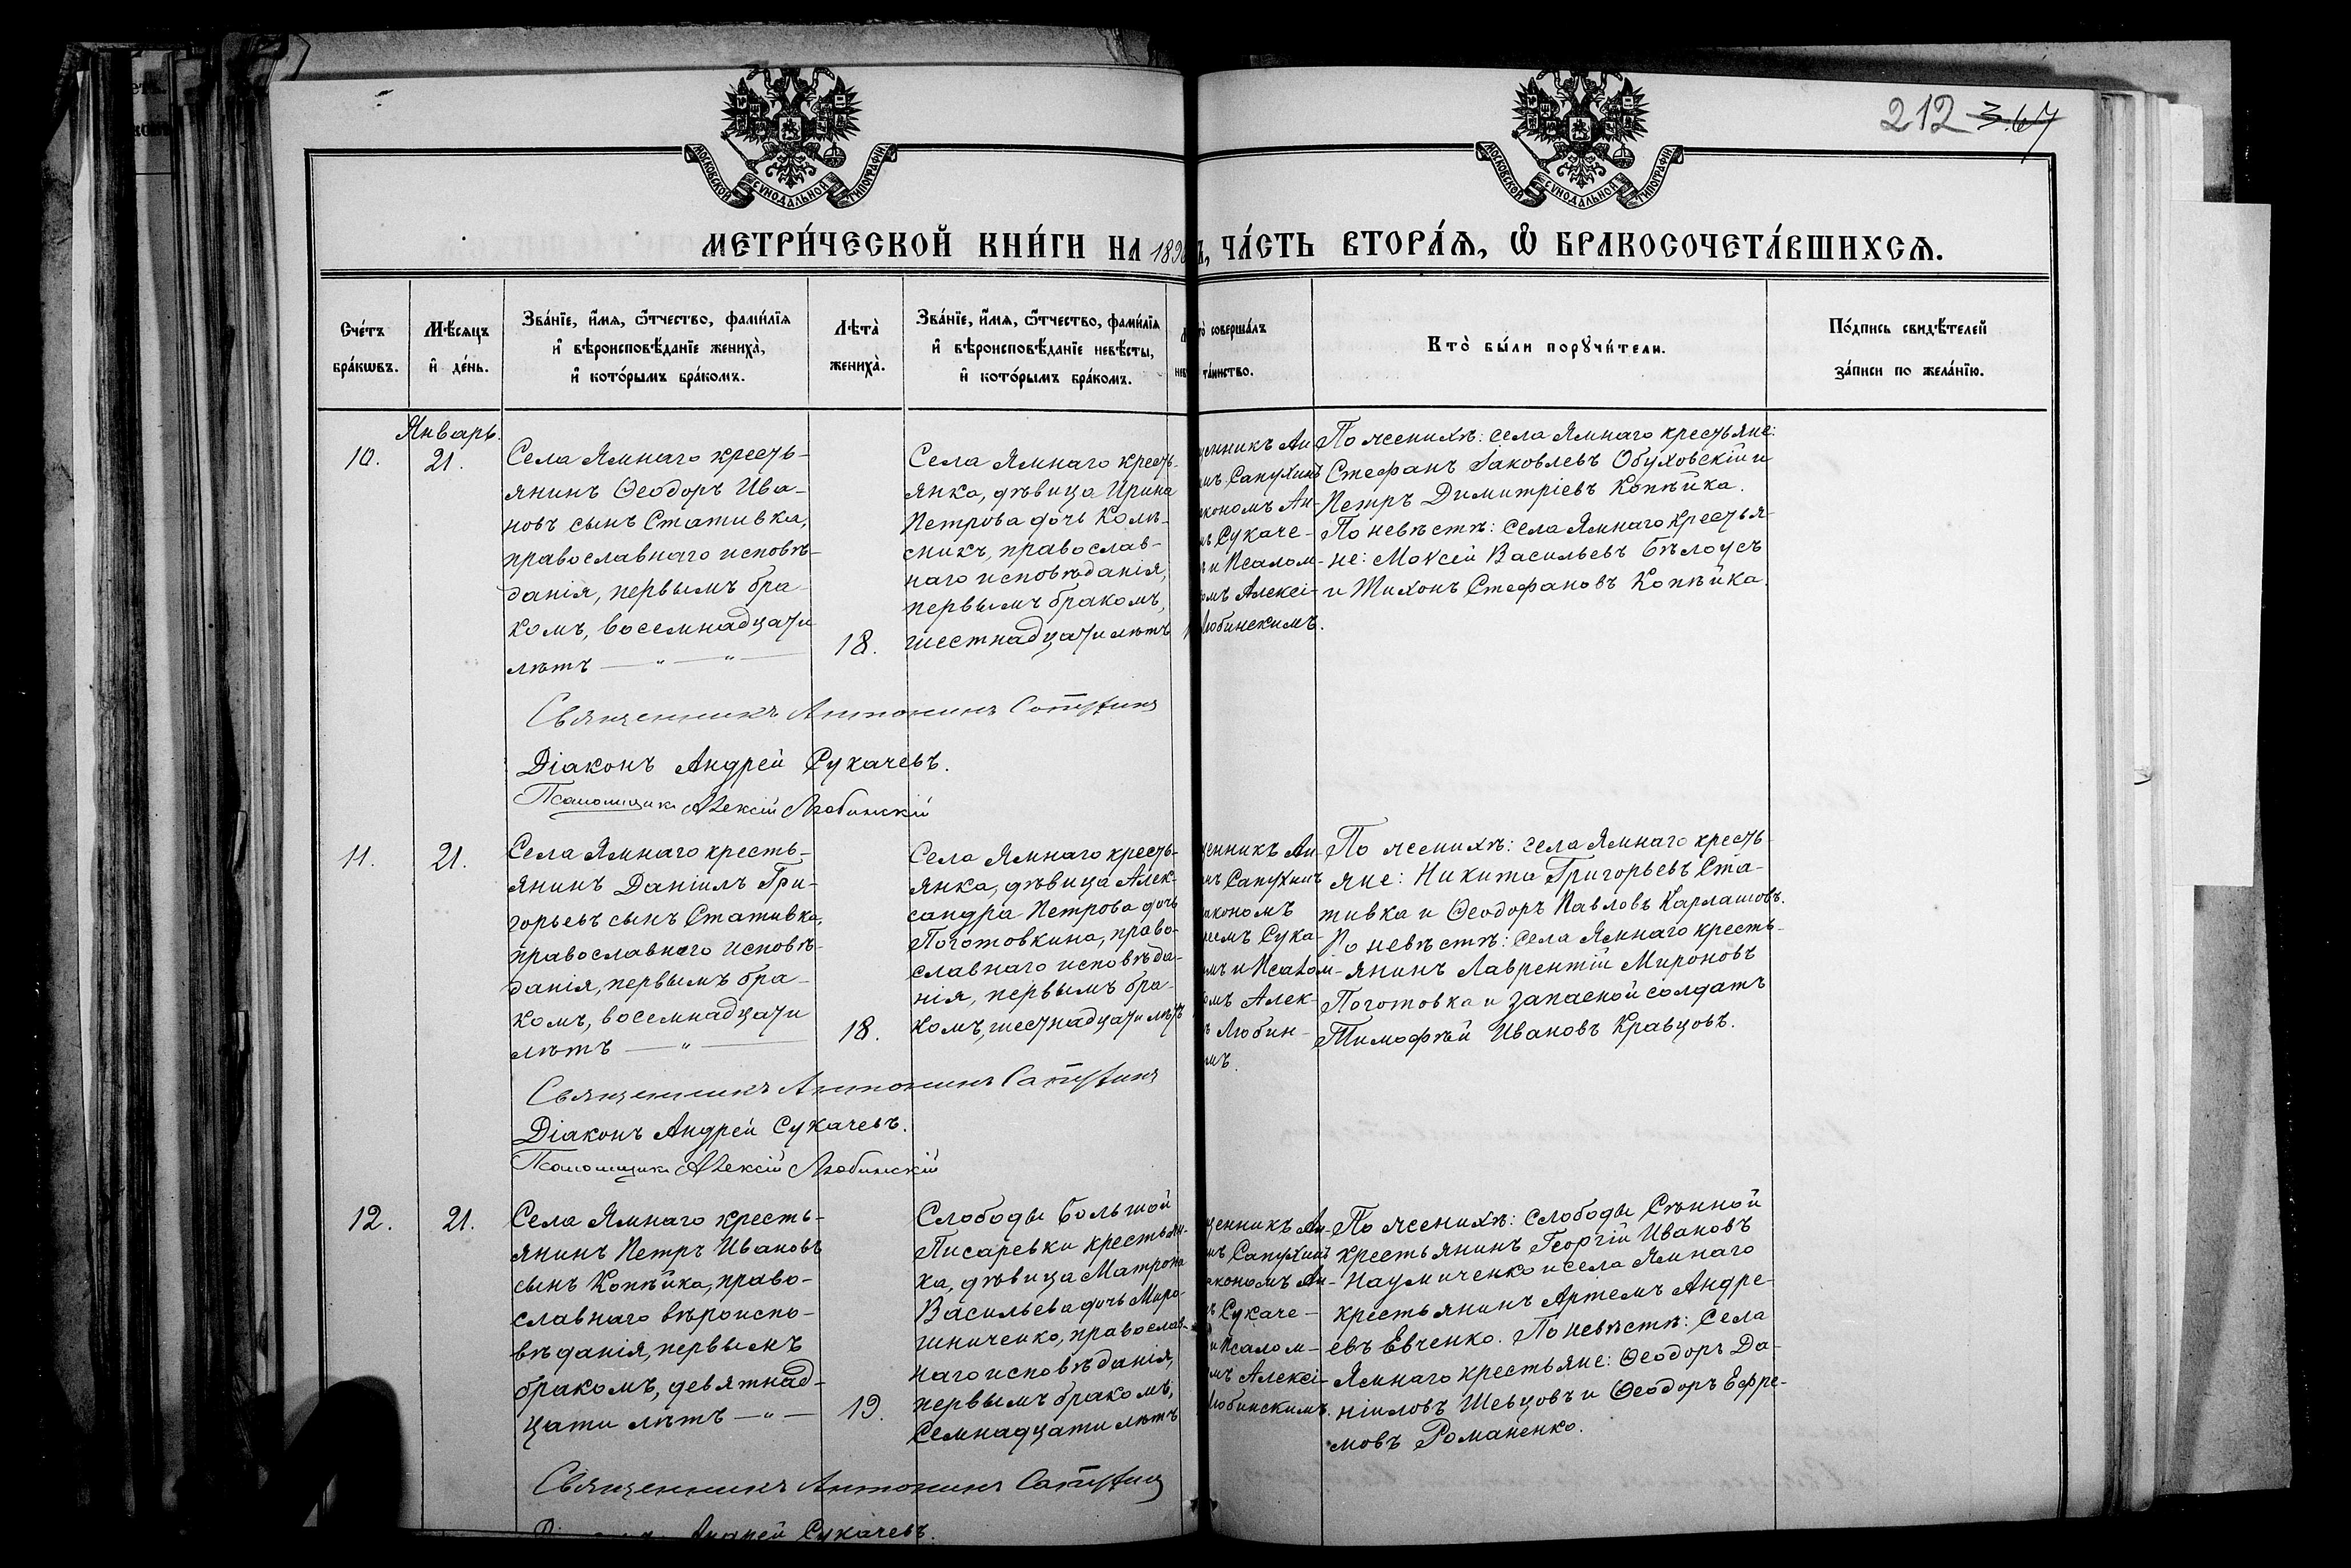 212 367
МОСКОВСКОЙ СѴНОДАЛЬНОЙ ТИПОГРАФІИ
МОСКОВСКОЙ СѴНОДАЛЬНОЙ ТИПОГРАФІИ
МЕТРИ́ЧЕСКОЙ КНИ́ГИ НА 189 ЧА́СТЬ ВТОРА́Ѧ, Ѽ БРАКОСОЧЕТА́ВШИХСѦ.
Сче́тъ
бра́кѡвъ.
Мѣ́сяцъ
и҆ де́нь.
Зва́нїе, и҆́мѧ, ѻ҆́тчество, фами́лїѧ
и҆ вѣроисповѣ́данїе жениха̀,
и҆ кото́рымъ бра́комъ.
Лѣта̀
жениха̀.
Зва́нїе, и҆́мѧ, ѻ҆́тчество, фами́лїѧ
и҆ вѣроисповѣ́данїе невѣ́сты,
и҆ кото́рымъ бра́комъ.
соверша́лъ
та́инство.
Кто̀ бы́ли порꙋчи́тели.
По́дпись свидѣ́телей
за́писи по жела́нїю.
Январь.
10.
21.
Села Ямнаго кресть-
янинъ Ѳеодоръ Ива-
новъ сынъ Стативка,
православнаго исповѣ-
данія, первымъ бра-
комъ, восемнадцати
лѣтъ — „ — „ —
18.
Села Ямнаго кресть-
янка, дѣвица Ирина
Петрова дочь Колѣ-
сникъ, православ-
наго исповѣданія,
первымъ бракомъ,
шестнадцати лѣтъ
щенникъ Ан-
нъ Сапухинъ
акономъ Ан-
мъ Сукаче-
и Псалом-
омъ Алексі-
Любинскимъ.
По женихѣ: села Ямнаго крестьяне:
Стефанъ Іаковлевъ Обуховскій и
Петръ Димитріевъ Копѣйка.
По невѣстѣ: села Ямнаго крестья-
не: Моѵсей Васильевъ Бѣлоусъ
и Тихонъ Стефановъ Копѣйка.
Священникъ Антонинъ Сапухинъ
Діаконъ Андрей Сукачевъ.
Псаломщикъ Алексій Любинскій
11.
21.
Села Ямнаго кресть-
янинъ Даніилъ Гри-
горьевъ сынъ Стативка,
православнаго исповѣ-
данія, первымъ бра-
комъ, восемнадцати
лѣтъ — „ —
18.
Села Ямнаго кресть-
янка, дѣвица Алек-
сандра Петрова дочь
Поготовкина, право-
славнаго исповѣда-
нія, первымъ бра-
комъ, шестнадцати лѣтъ
щенникъ Ан-
нъ Сапухинъ
акономъ
еемъ Сука-
мъ и Псалом-
омъ Алек-
ъ Любин-
мъ.
По женихѣ: села Ямнаго кресть-
яне: Никита Григорьевъ Ста-
тивка и Ѳеодоръ Павловъ Карлашовъ.
По невѣстѣ: села Ямнаго кресть-
янинъ Лаврентій Мироновъ
Поготовка и запасной солдатъ
Тимофѣй Ивановъ Кравцовъ.
Священникъ Антонинъ Сапухинъ
Діаконъ Андрей Сукачевъ.
Псаломщикъ Алексій Любинскій
12.
21.
Села Ямнаго кресть-
янинъ Петръ Ивановъ
сынъ Копѣйка, право-
славнаго вѣроиспо-
вѣданія, первымъ
бракомъ, девятнад-
цати лѣтъ — „ —
19.
Слободы Большой
Писаревки крестьян-
ка, дѣвица Матрона
Васильева дочь Миро-
шниченко, православ-
наго исповѣданія,
первымъ бракомъ,
семнадцати лѣтъ
щенникъ Ан-
нъ Сапухинъ
акономъ Ан-
ъ Сукаче-
и Псалом-
мъ Алексі-
Любинскимъ.
По женихѣ: слободы Сѣнной
крестьянинъ Георгій Ивановъ
Наумиченко и села Ямнаго
крестьянинъ Артемъ Андре-
евъ Евченко. По невѣстѣ: села
Ямнаго крестьяне: Ѳеодоръ Да-
ніиловъ Шевцовъ и Ѳеодоръ Ефре-
мовъ Романенко.
Священникъ Антонинъ Сапухинъ
Андрей Сукачевъ.